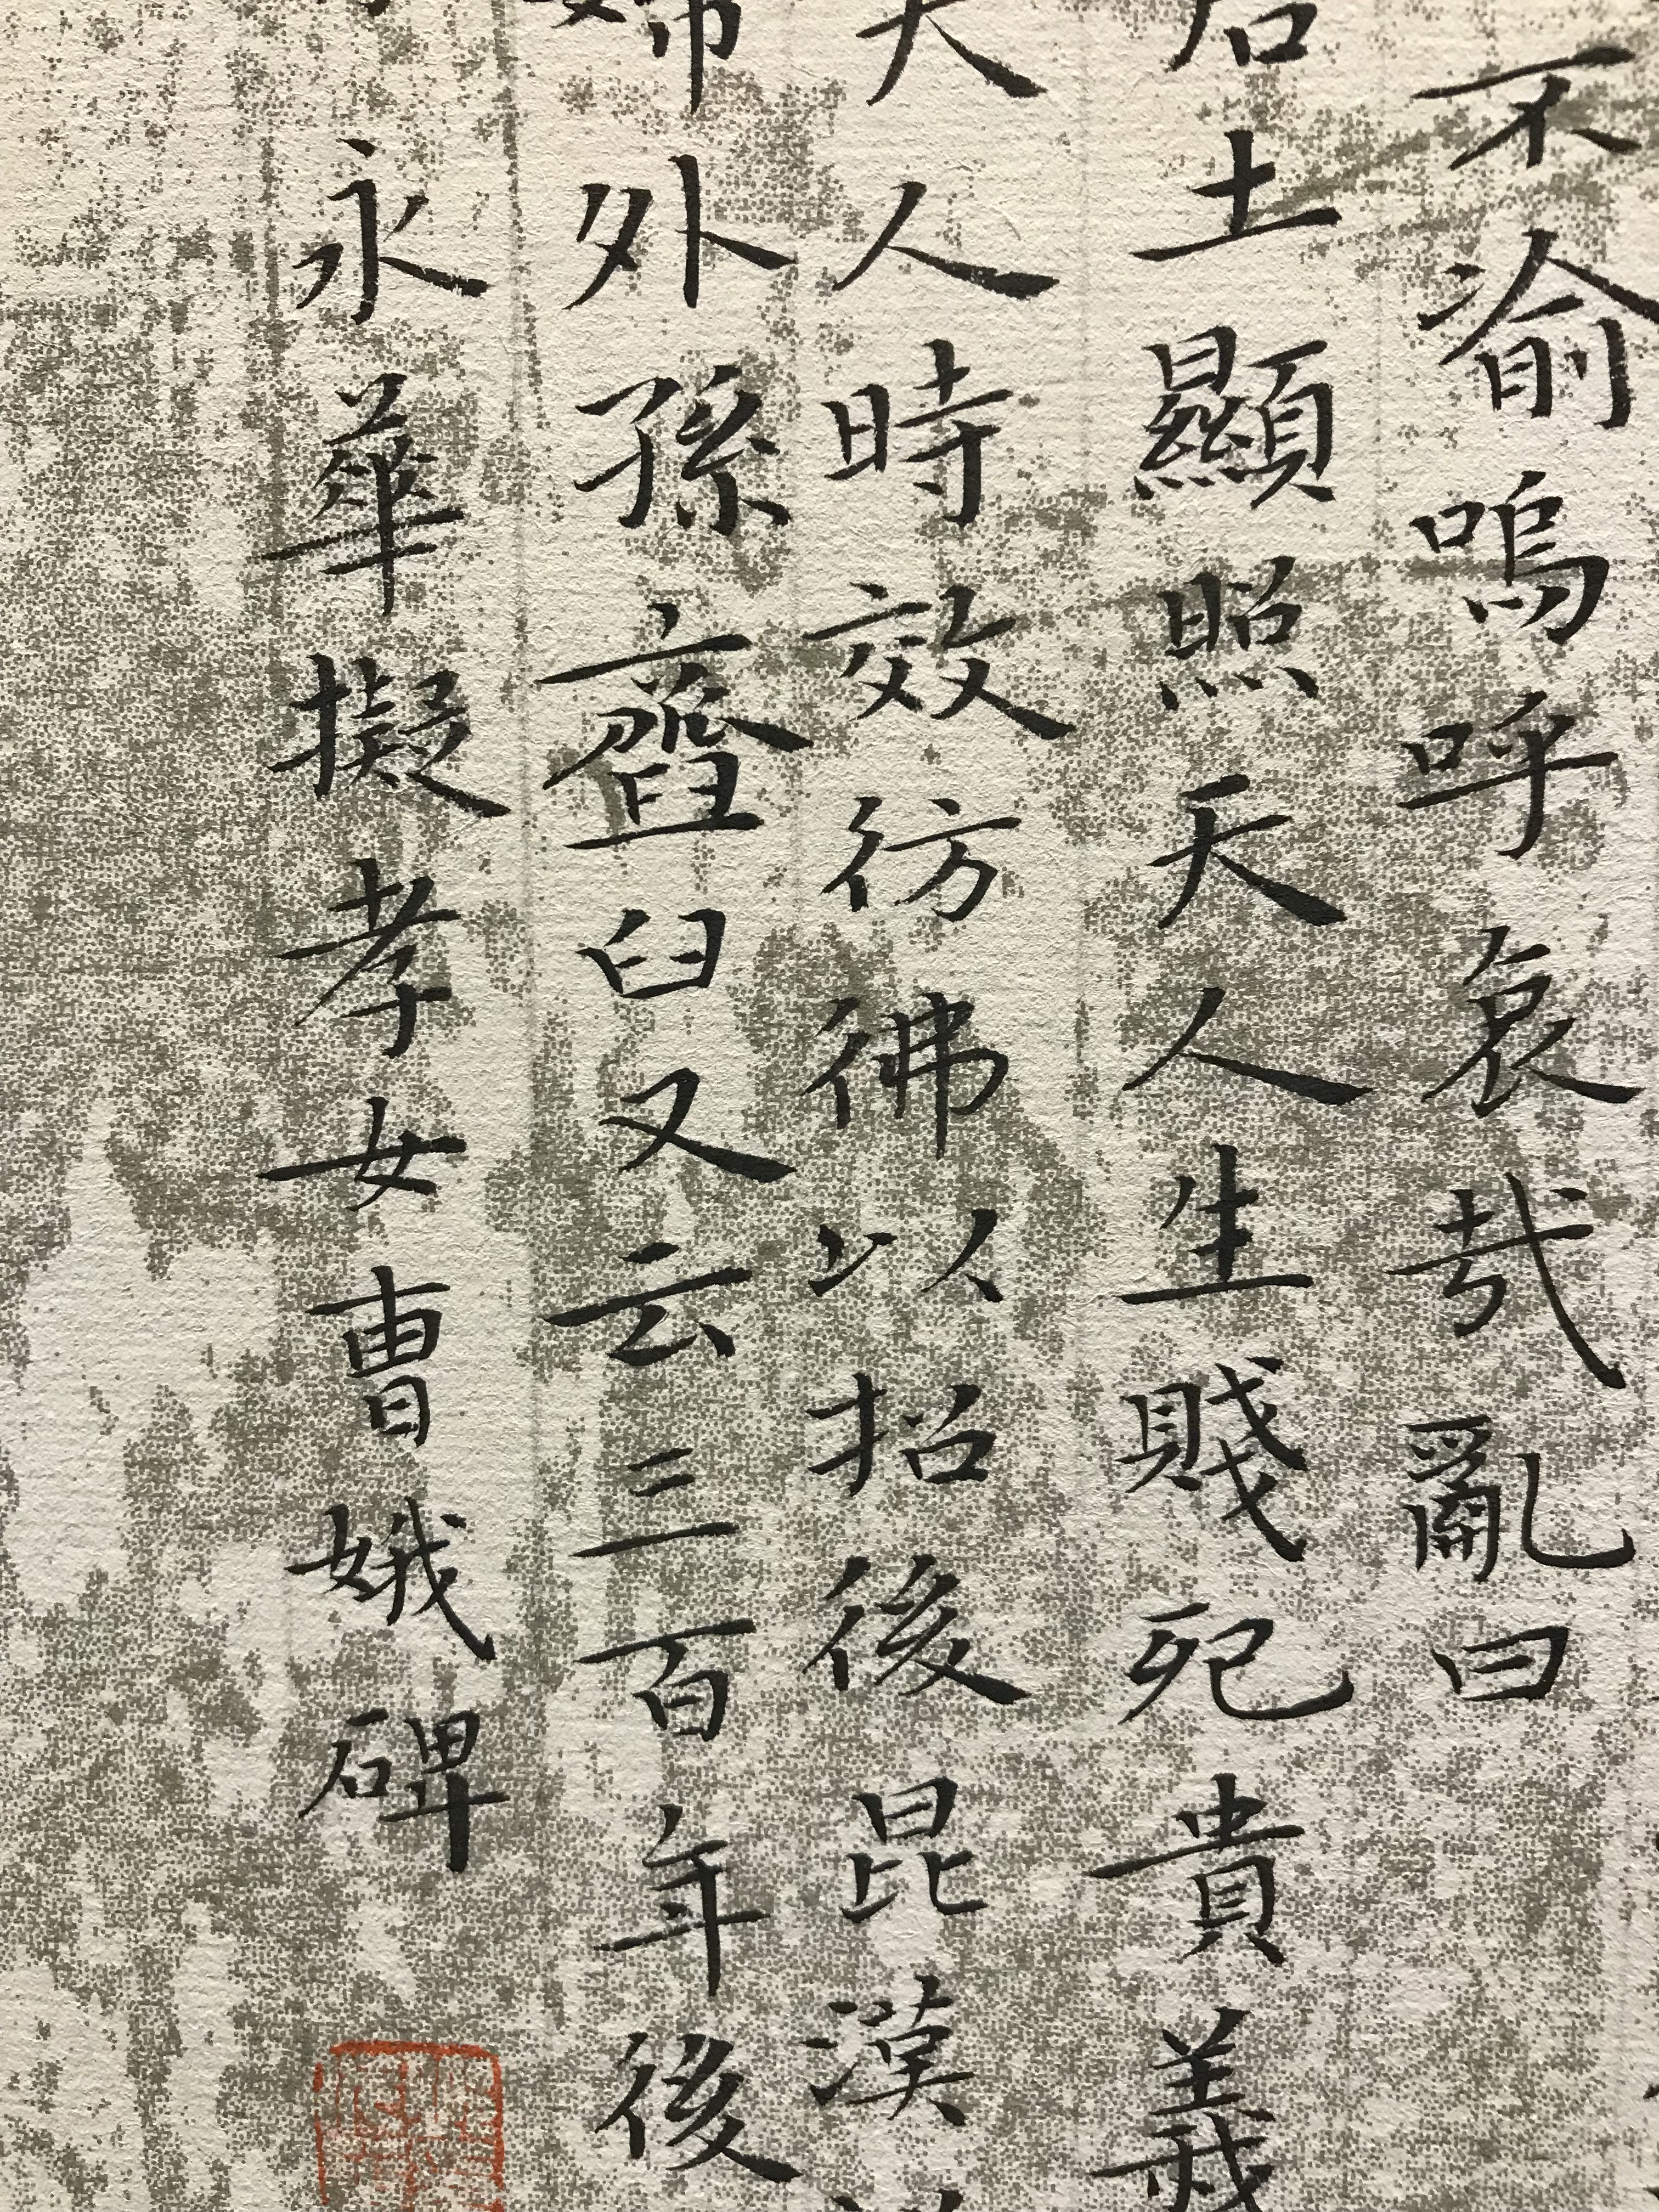 不渝嗚呼哀哉亂曰
后土顯照天人生賤死貴義
夫人時效彷彿以招後昆漢
婦外孫齏臼又云三百年後
永華擬孝女曹娥碑